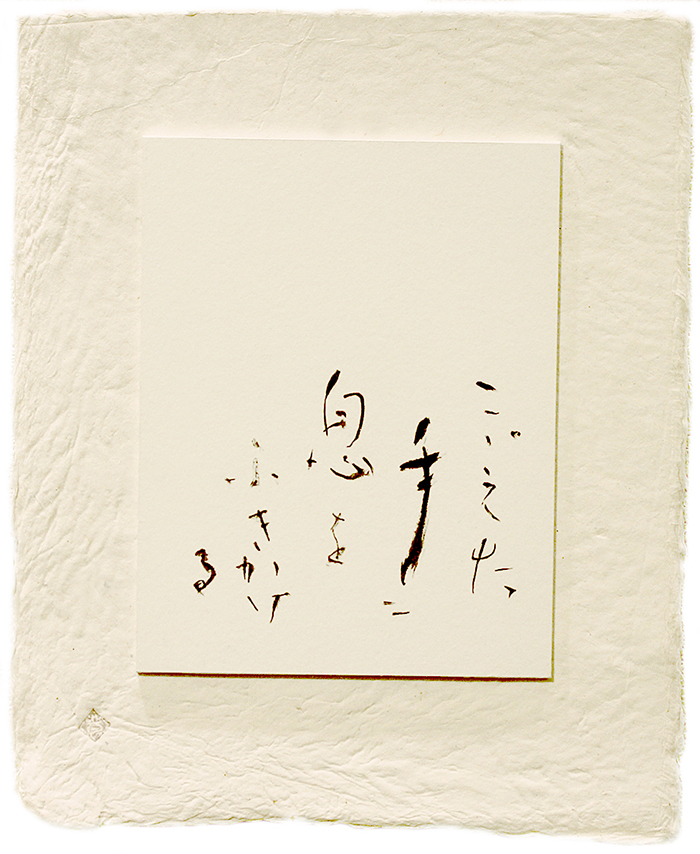 こゞえた
手に
息を
ふきかけ
る